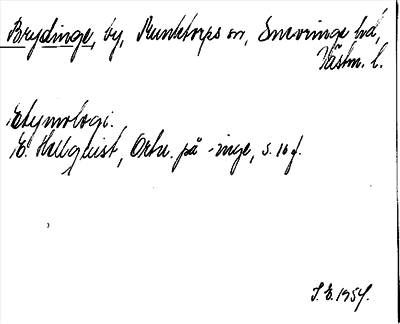 Brydinge, by, Munktorps sn, Snevringe hd,
Västm. l.
Etymologi.
E. Hellquist, Ortn. på -inge, s. 16 f.
S. E. 1954.